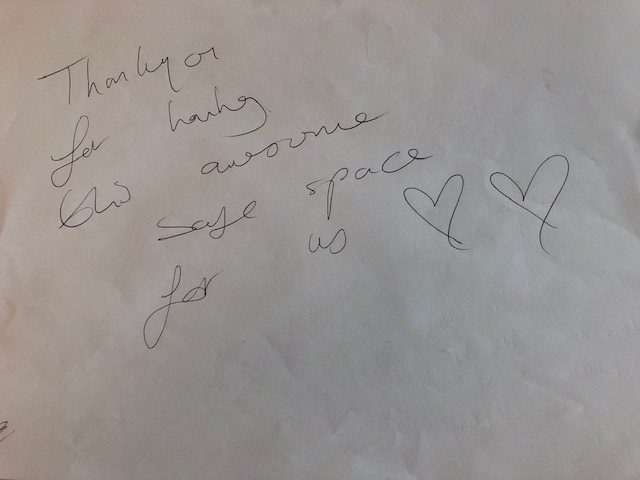 Thankyou
for having
this awesome
safe space
for us